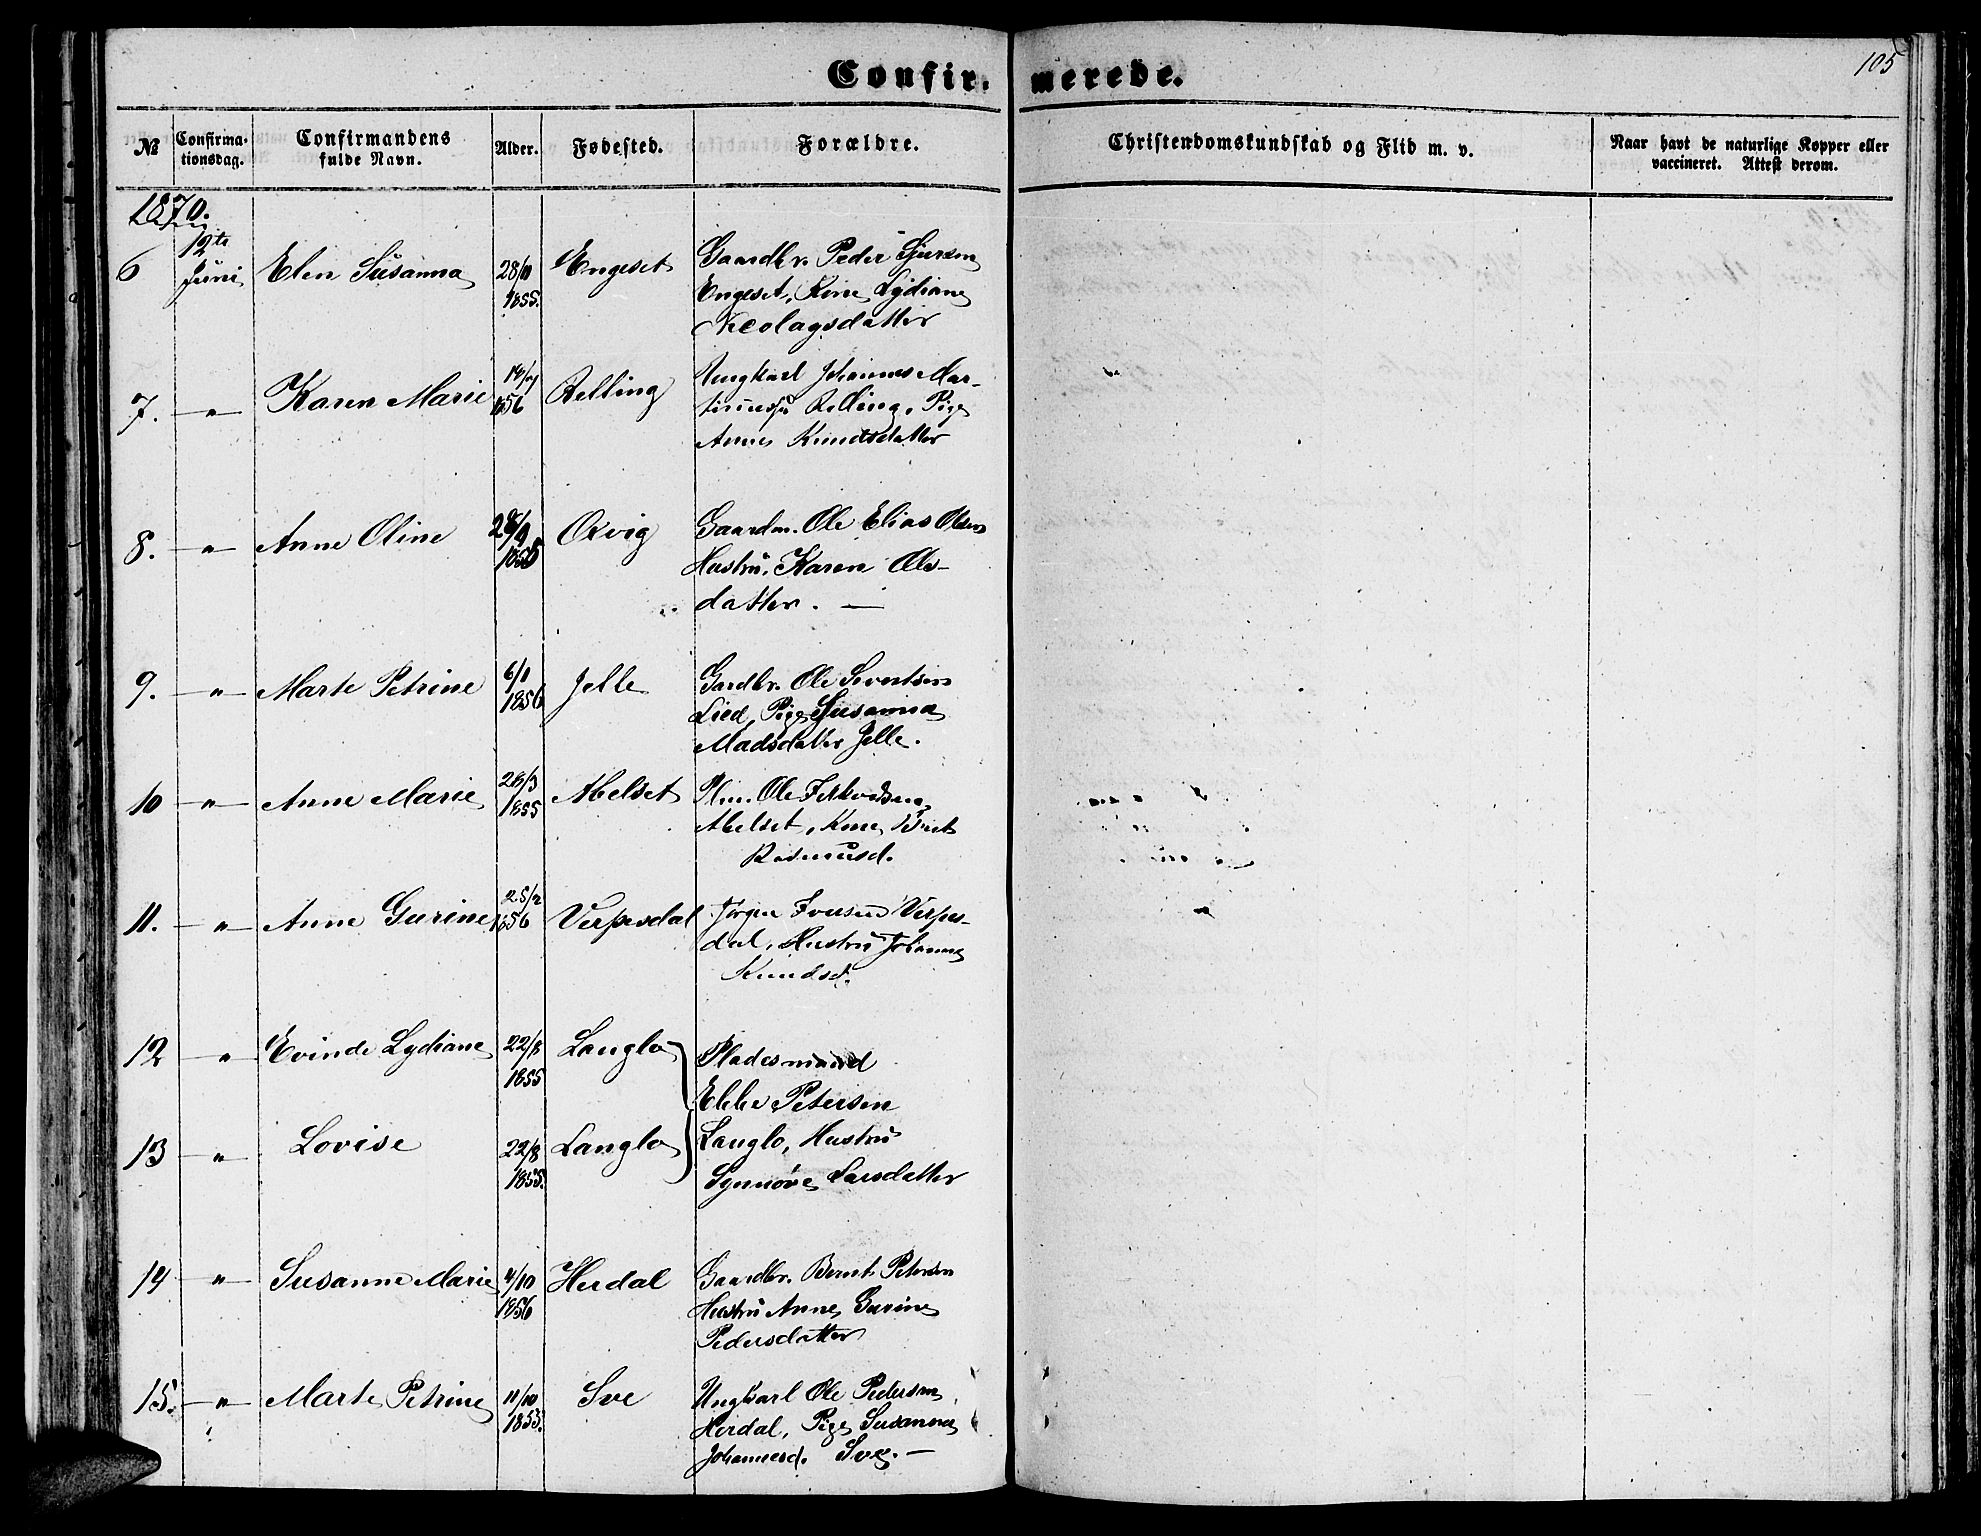 Confir. merede.
105
№ Confirma-tionsdag. Confirmandens fulde Navn. Alder. Fødested. Forældre. Christendomskundskab og Flid m. v. Naar havt de naturlige Kopper eller vaccineret. Attest derom.
1870.
6 12te Juni Elen Susanna 28/10 1855. Engeset Gaardbr. Peder
Engeset, Kone Lydiane
Neolagsdatter
7. " Karen Marie 1856 Relling Ungkarl Johannes Mar-
tinussn Relling, Pige
Anne Knudtsdatter
8. " Anne Oline 28/9 1855 Oxvig Gaardm. Ole Elias Olsen
Hustru, Karen Ols-
datter. —
9. " Marte Petrine 6/1 1856 Jelle Gardbr. Ole Sivertsen
Lied, Pige Susanna
Madsdatter Jelle.
10 " Anne Marie 28/3 1855 Abelset Plm. Ole
Abelset, Kone Brit
Rasmusd.
11. " Anne Gurine 25/2 1856 Verpesdal Jørgen Iversen Verpes-
dal, Hustru Johanne
Knudsd.
12 " Evinde Lydiane 22/8 1855 Langlo Pladesmand
Ebbe Petersen
13 " Lovise 22/8 1855. Langlo Langlo, Hustru
Synnøve Larsdatter
14 " Susanne Marie 4/10 1856 Herdal Gaardbr. Bernt Petersen
Hustru Anne Gurine
Pedersdatter
15. " Marte Petrine 11/10 1855. Sve Ungkarl Ole Pedersen
Herdal, Pige Susanne
Johannesd. Sve. —